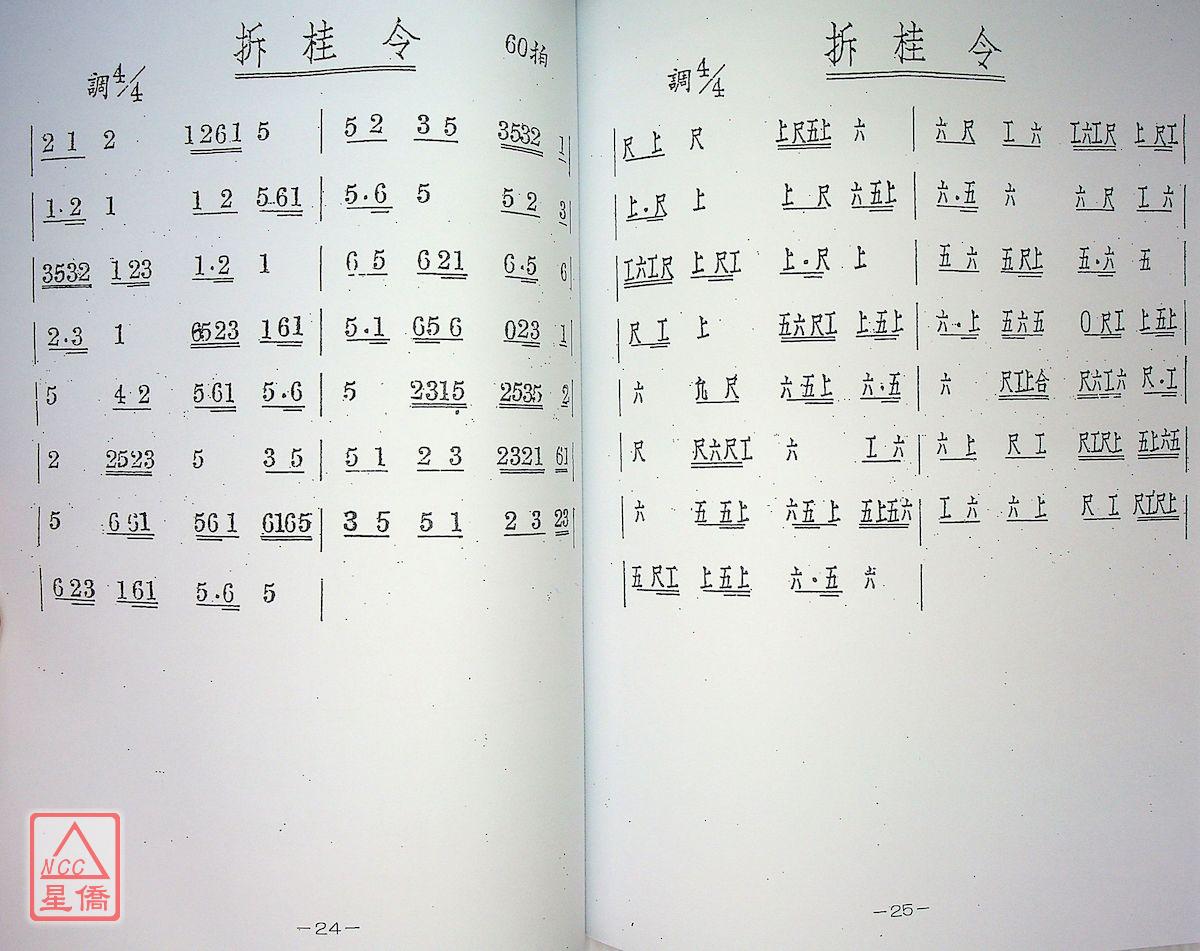 拆桂令
60拍
調4/4
21 2 1261 5 | 52 35 3532 1
1·2 1 12 561 | 5·6 5 52 3
3532 123 1·2 1 | 65 621 6·5 6
2·3 1 6523 161 | 5·1 656 023 1
5 42 561 5·6 | 5 2315 2535 2
2 2523 5 35 | 51 23 2321 61
5 661 561 6165 | 35 51 23 23
623 161 5·6 5
-24-
拆桂令
調4/4
尺上 尺 上尺五上 六 | 六尺 工六 工六工尺 上尺工
上·尺 上 上尺 六五上 | 六·五 六 六尺 工六
工六工尺 上尺工 上·尺 上 | 五六 五尺上 五·六 五
尺工 上 五六尺工 上五上 | 六·上 五六五 0尺工 上五上
六 尺 六五上 六·五 | 六 尺工上合 尺六工六 尺·工
尺 尺六尺工 六 工六 | 六上 尺工 尺工尺上 五上六五
六 五五上 六五上 五上五六 | 工六 六上 尺工 尺工尺上
五尺工 上五上 六·五 六
-25-
NCC
星僑